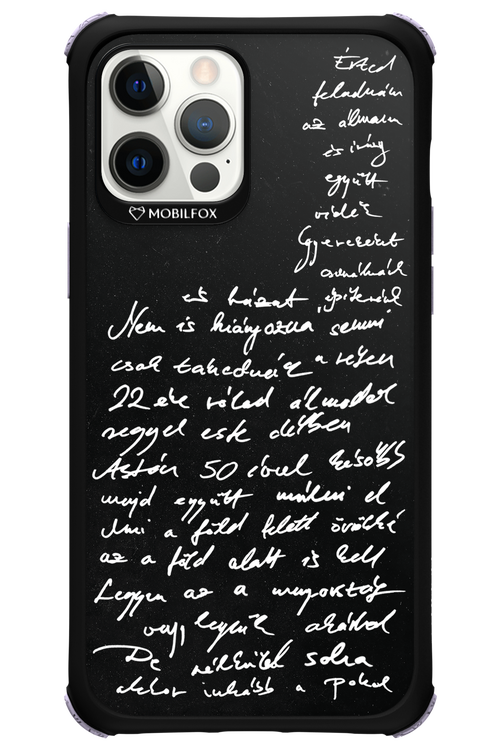 MOBILFOX
Érted
feladnám
az álmam
és irány
együtt
vidék
Gyereket
csinálnánk
és házat építenénk
Nem is hiányozna semmi
csak takednék a réten
22 éve rólad álmodok
reggel este délben
Aztán 50 évvel később
majd együtt múlni el
Ami a föld felett örökké
az a föld alatt is kell
Legyen az a mennyország
vagy legyünk akárhol
De nélküled soha
akkor inkább a Pokol